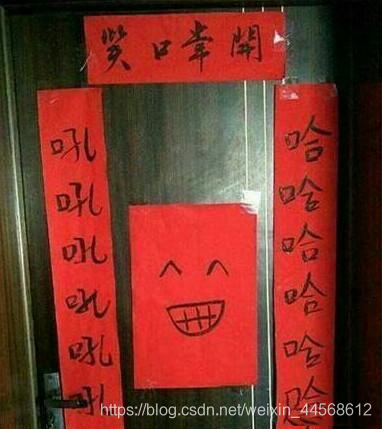 口常開
哈哈哈哈哈哈
吼吼吼吼吼吼
https://blog.csdn.net/weixin_44568612